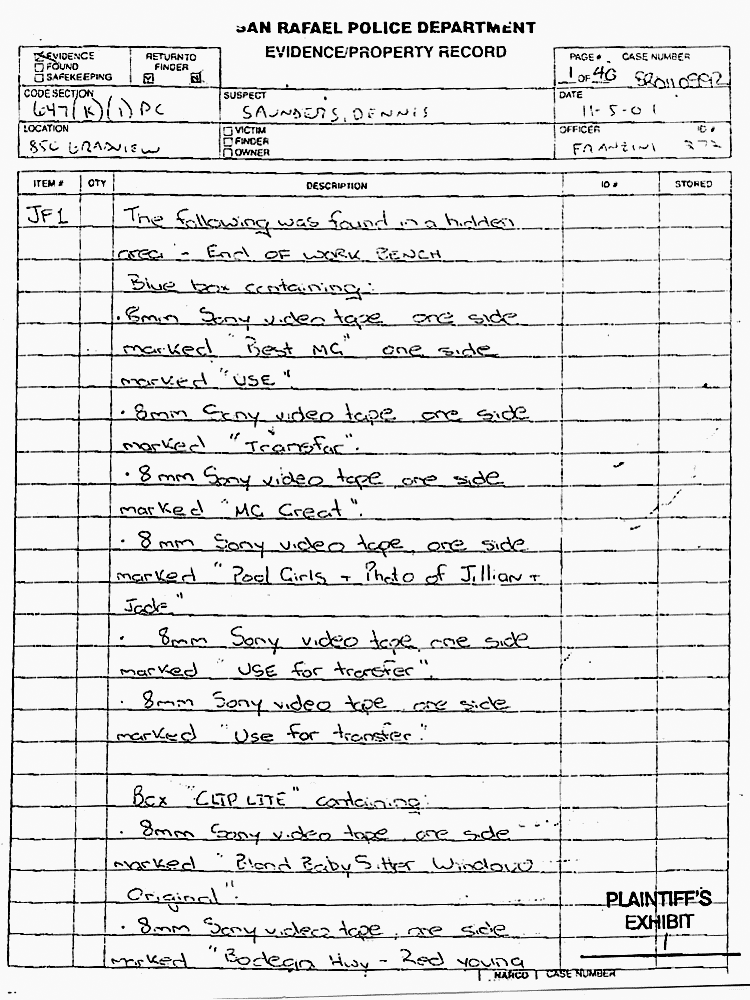 SAN RAFAEL POLICE DEPARTMENT
EVIDENCE/PROPERTY RECORD
EVIDENCE
FOUND
SAFEKEEPING
RETURN TO
FINDER
Y N
PAGE # CASE NUMBER
1 OF 46
CODE SECTION
647(K)(1) PC
SUSPECT
SAUNDERS, DENNIS
DATE
11-5-01
LOCATION
VICTIM
FINDER
OWNER
OFFICER ID #
FRANZINI 372
ITEM # QTY DESCRIPTION ID # STORED
JF1 The following was found in a hidden
area - End OF WORK BENCH
Blue box containing:
· 8mm Sony video tape one side
marked "Best MG" one side
marked "USE".
· 8mm Sony video tape one side
marked "Transfar".
· 8mm Sony video tape, one side
marked "MG Great".
· 8mm Sony video tape, one side
marked "Pool Girls + Photo of Jillian +
· 8mm Sony video tape, one side
marked "USE for transfer".
· 8mm Sony video tape, one side
marked "Use for transfer."
Box "CLIP LITE" containing:
· 8mm Sony video tape, one side
marked "Blond Baby Sitter Window
Original".
· 8mm Sony video tape, one side
marked "Bodega Hwy - Red young
PLAINTIFF'S
EXHIBIT
1
NARCO CASE NUMBER